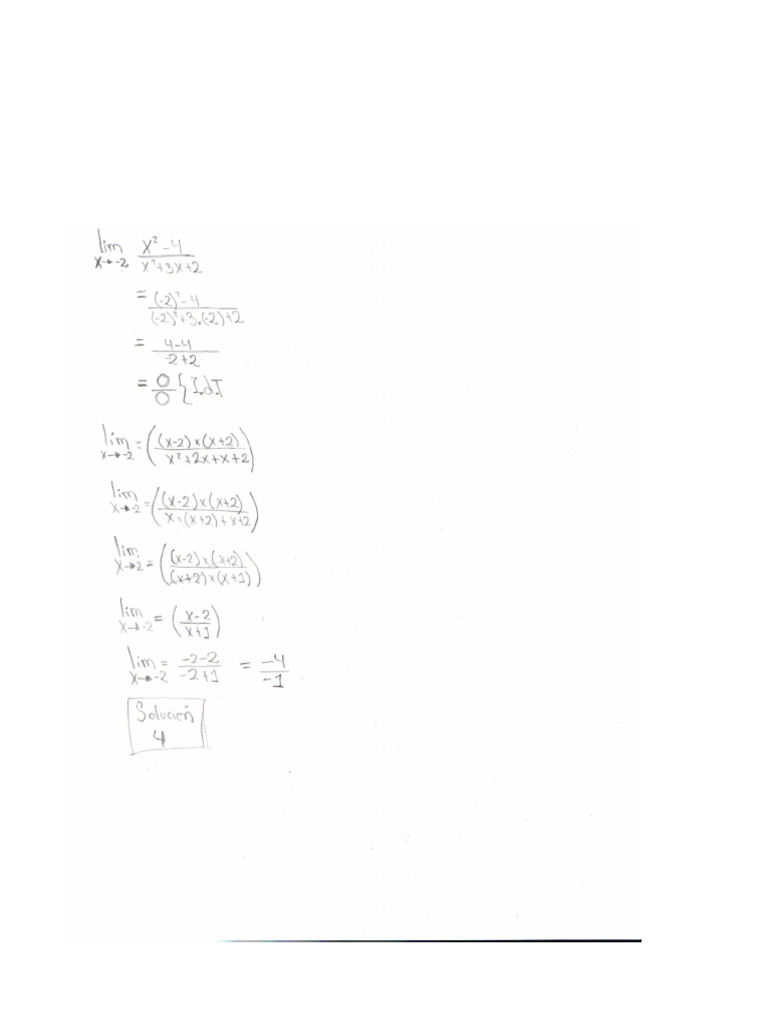 lim x→-2 x²-4 / x²+3x+2
= (-2)²-4 / (-2)²+3.(-2)+2
= 4-4 / -2+2
= 0/0 { I.d.T
lim x→-2 = ((x-2)x(x+2) / x²+2x+x+2)
lim x→-2 = ((x-2)x(x+2) / x×(x+2)+x+2)
lim x→2 = ((x-2)x(x+2) / (x+2)x(x+1))
lim x→-2 = (x-2 / x+1)
lim x→-2 = -2-2 / -2+1 = -4 / -1
Solución
4